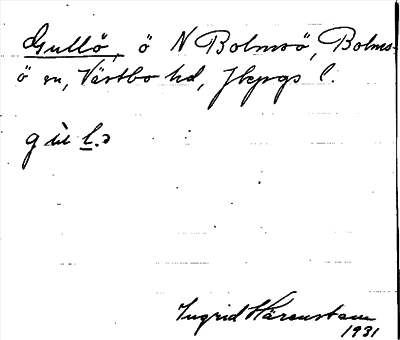 Gullö, ö N Bolmsö, Bolms-
ö sn, Västbo hd, Jkpgs l.
Ingrid Härenstam
1931